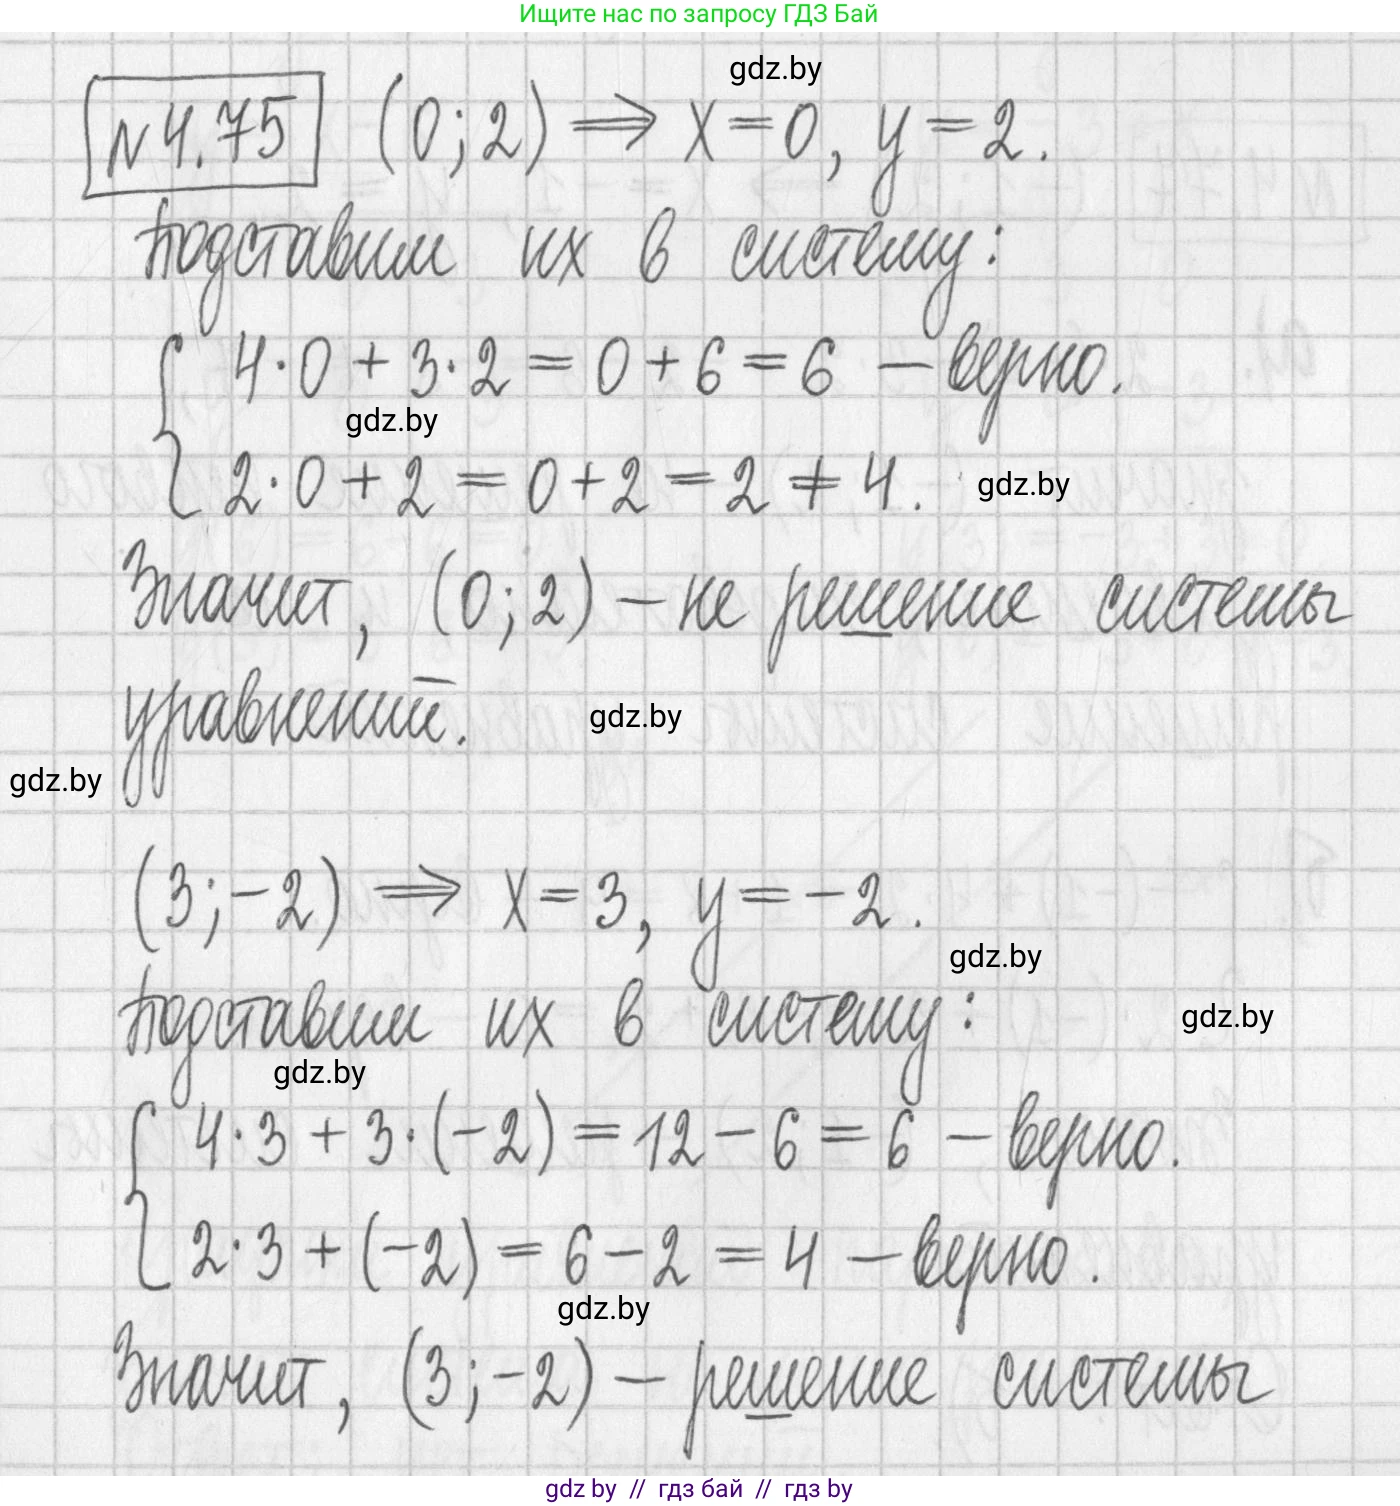 Ищите нас по запросу ГДЗ Бай
gdz.by
№4.75 (0; 2) ⟹ x = 0, y = 2.
Подставим их в систему:
4·0 + 3·2 = 0 + 6 = 6 — верно.
gdz.by
2·0 + 2 = 0 + 2 = 2 ≠ 4.
gdz.by
Значит, (0; 2) — не решение системы
уравнений.
gdz.by
gdz.by
(3; -2) ⟹ x = 3, y = -2.
gdz.by
Подставим их в систему:
gdz.by
gdz.by
4·3 + 3·(-2) = 12 - 6 = 6 — верно.
2·3 + (-2) = 6 - 2 = 4 — верно.
gdz.by
Значит, (3; -2) — решение системы
gdz by // гдз бай // гдз by